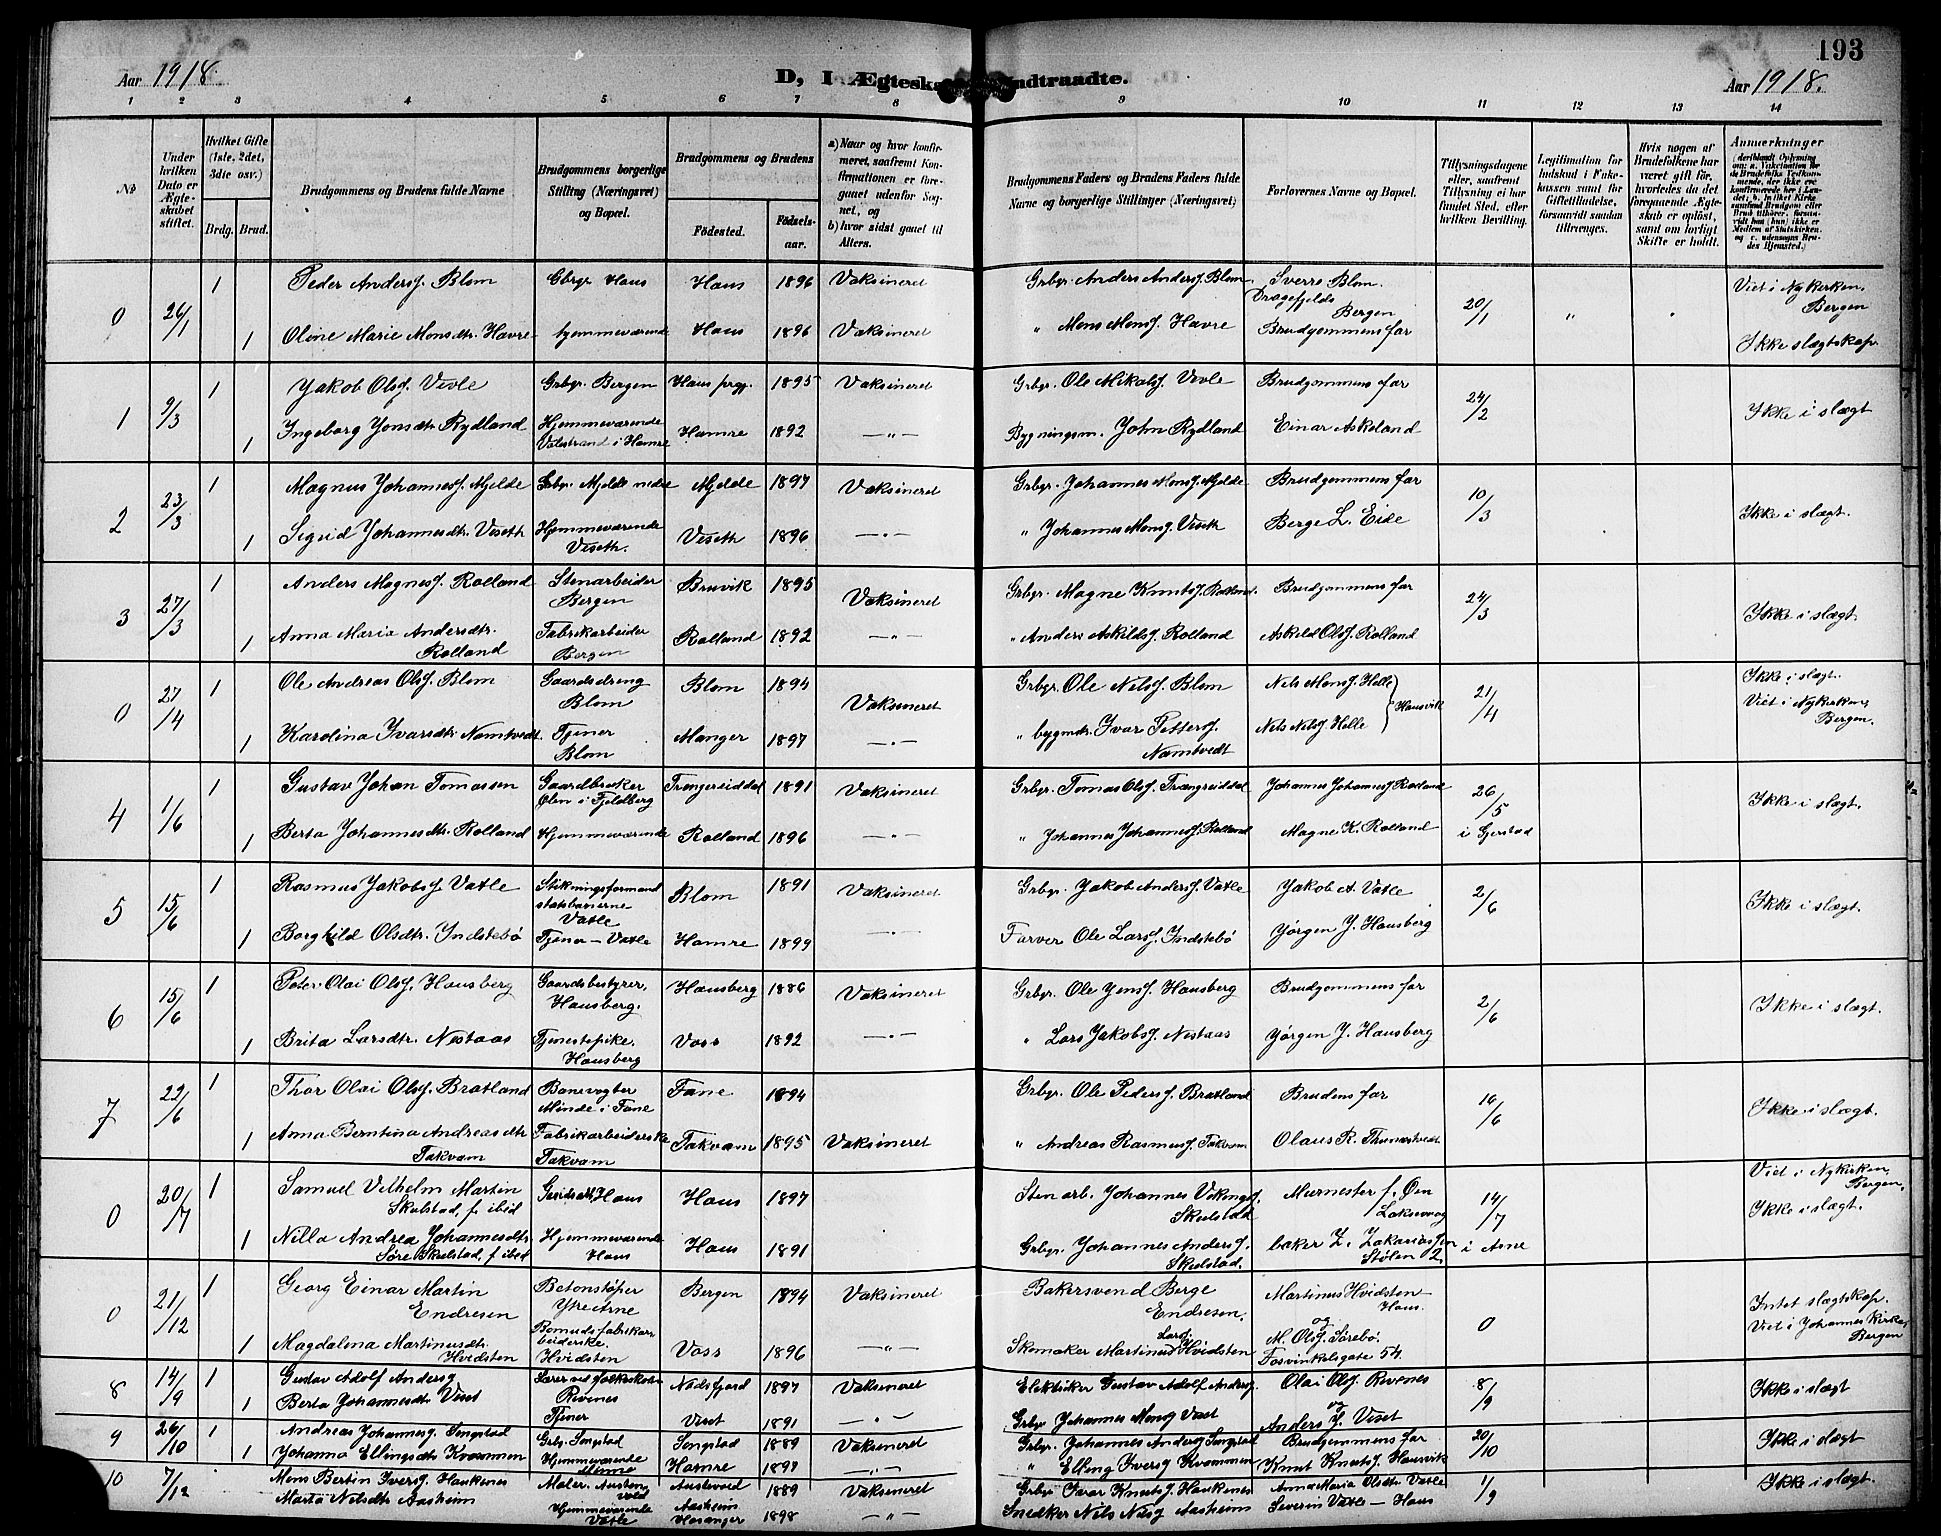 193
Aar 1918.
D, I Ægteska ndtraadte.
Aar 1918.
1 2 3 4 5 6 7 8 9 10 11 12 13 14
No
Under hvilken Dato er Ægteskabet stiftet.
Hvilket Gifte (1ste, 2det, 3die osv.)
Brdg. Brud.
Brudgommens og Brudens fulde Navne
Brudgommens borgerlige Stilling (Næringsvei) og Bopæl.
Brudgommens og Brudens
Fødested.
Fødselsaar.
a) Naar og hvor konfirmeret, saafremt Konfirmationen er foregaaet udenfor Sognet, og
b) hvor sidst gaaet til Alters.
Brudgommens Faders og Brudens Faders fulde Navne og borgerlige Stillinger (Næringsvei)
Forlovernes Navne og Bopæl.
Tillysningsdagene eller, saafremt Tillysning ei har fundet Sted, efter hvilken Bevilling.
Legitimation for Indskud i Enkekassen samt for Giftetilladelse, forsaavidt saadan tiltrænges.
Hvis nogen af Brudefolkene har været gift før, hvorledes da det foregaaende Ægteskab er opløst, samt om lovligt Skifte er holdt.
Anmærkninger
0 26/1 1 Peder Andersf. Blom Gbryr Haus Haus 1896 Vaksineret Grbr. Anders Andersf. Blom Sverre Blom. Dragefjelds Bergen 20/1 " Viet i Nykirken, Bergen
1 Oline Marie Monsdtr. Havre hjemmeværende Haus 1896 Vaksineret " Mons Monsf. Havre Brudgommens far Ikke slægtskap
1 9/3 1 Jakob Olsf. Veole Grbr. Bergen Haus prgj. 1895 Vaksineret Grbr. Ole Mikalsf. Veole Brudgommens far 24/2 Ikke i slægt
1 Ingeborg Jonsdtr. Rydland Hjemmeværende Valestrand i Hamre Hamre 1892 —"— Bygningsm. John Rydland Einar Askeland
2 23/3 1 Magnus Johannesf. Mjelde Grbr. Mjelde nedre Mjelde 1897 Vaksineret Grbr. Johannes Monsf. Mjelde Brudgommens far 10/3 Ikke i slægt.
1 Sigrid Johannesdtr. Veseth Hjemmeværende Veseth. Veseth 1896 —"— " Johannes Monsf. Veseth Berge L. Eide
3 27/3 1 Anders Magnesf. Rolland Stenarbeider Bergen Bruvik 1895 Vaksineret Grbr. Magne Knutsf. Rolland. Brudgommens far 24/3 Ikke i slægt.
1 Anna Maria Andersdtr. Rolland Fabrikarbeider Bergen Rolland 1892 —"— " Anders Askildsf. Rolland Askild Olsf. Rolland
0 27/4 1 Ole Andreas Olsf. Blom Gaardsdreng Blom Blom 1894 Vaksineret Grbr. Ole Nilsf. Blom Nils Monsf. Helle 21/4 Ikke i slægt.
1 Karolina Ivarsdtr. Namtvedt. Tjener Blom Manger 1897 —"— " bygmdr. Ivar Pettersf. Namtvedt Nils Nilsf. Helle Hausvik Viet i Nykirken, Bergen.
4 1/6 1 Gustav Johan Tomassen Gaardbruker Ølen i Fjeldberg Trengereiddal 1891 Vaksineret Grbr. Tomas Olsf. Trængreiddal Johannes Johannesf. Rolland 26/5 i Gjerstad Ikke i slægt.
1 Berta Johannesdtr. Rolland Hjemmeværende Rolland 1896 —"— " Johannes Johannesf. Rolland Magne K. Rolland
5 15/6 1 Rasmus Jakobsf. Vatle Stikningsformand statsbanerne Vatle Blom 1891 Vaksineret Grbr. Jakob Andersf. Vatle Jakob A. Vatle 2/6 Ikke i slægt.
1 Borghild Olsdtr. Indstebö Tjener – Vatle Hamre 1899 —"— Farver Ole Larsf. Indstebö Jörgen J. Hausberg
6 15/6 1 Peter Olai Olsf. Hausberg Gaardsbestyrer, Hausberg. Hausberg 1886 Vaksineret Grbr. Ole Jensf. Hausberg Brudgommens far 2/6 Ikke i slægt.
1 Brita Larsdtr. Nestaas Tjenestepike. Hausberg Voss 1892 —"— " Lars Jakobsf. Nestaas Jörgen J. Hausberg
7 22/6 1 Thor Olai Olsf. Bratland Banevogter Minde i Fane Fane 1894 Grbr. Ole Pedersf. Bratland Brudens far 16/6 Ikke i slægt.
1 Anna Berntina Andreasdtr Takvam Fabrikarbeiderske Takvam Takvam 1895 Vaksineret " Andreas Rasmusf. Takvam Olaus R. Thunestvedt
0 20/7 1 Samuel Vilhelm Martin Skulstad, f. ibid Haus Haus 1897 Stenarb. Johannes Vikingsf. Skulstad Murmester f. Øen Laksevaag 14/7 i Arne Viet i Nykirken, Bergen.
1 Nilla Andrea Johannesdtr Søre Skulstad, f. ibid Hjemmeværende Haus Haus 1891 Grbr. Johannes Andersf. Skulstad. baker Z. Zakariassen Stølen 2. Ikke i slægt.
0 21/12 1 Georg Einar Martin Endresen Betonstøper Ytre Arne Bergen 1894 Vaksineret Bakersvend Berge Endresen. Martinus Hvidsten Haus. og 0 Intet slægtskap.
1 Magdalena Martinusdtr. Hvidsten Bomuldsfabrikarbeiderske. Hvidsten Voss 1896 —"— Skomaker Martinus Larsf. Hvidsten M. Olsf. Sörebö Fosvinkelsgate 54. Viet i Johannes Kirke, Bergen
8 14/9 1 Gustav Adolf Andersf Lærer ved folkeskolen Revenes 1897 Vaksineret Elektriker Gustav Adolf Andersf. Olai Olsf. Revenes og 8/9 Ikke i slægt
1 Berta Johannesdtr Viset Tjener Viset 1891 —"— Grbr Johannes Monsf Viset Anders J. Viset
9 26/10 1 Andreas Johannesf. Songstad Grbr. Songstad Songstad 1889 Vaksineret Grbr. Johannes Andersf Songstad Brudgommens far 20/10 Ikke i slægt
1 Johanna Ellingsdtr Kvammen Hjemmeværende Hamre —"— " Elling Iversf Kvammen Knut Knutsf. Hausvik
10 7/12 Mons Bertin Iversf. Haukenes Maler. Austevold 1889 Vaksineret Grbr. Ivar Knutsf. Haukenes Anna Maria Olsdtr Vatle 1/9 Ikke i slægt.
Marta Nilsdtr Aasheim Hjemmeværende Vatle Aasheim Hosanger 1898 —"— Snedker Nils Nilsf Aasheim Severin Vatle – Haus